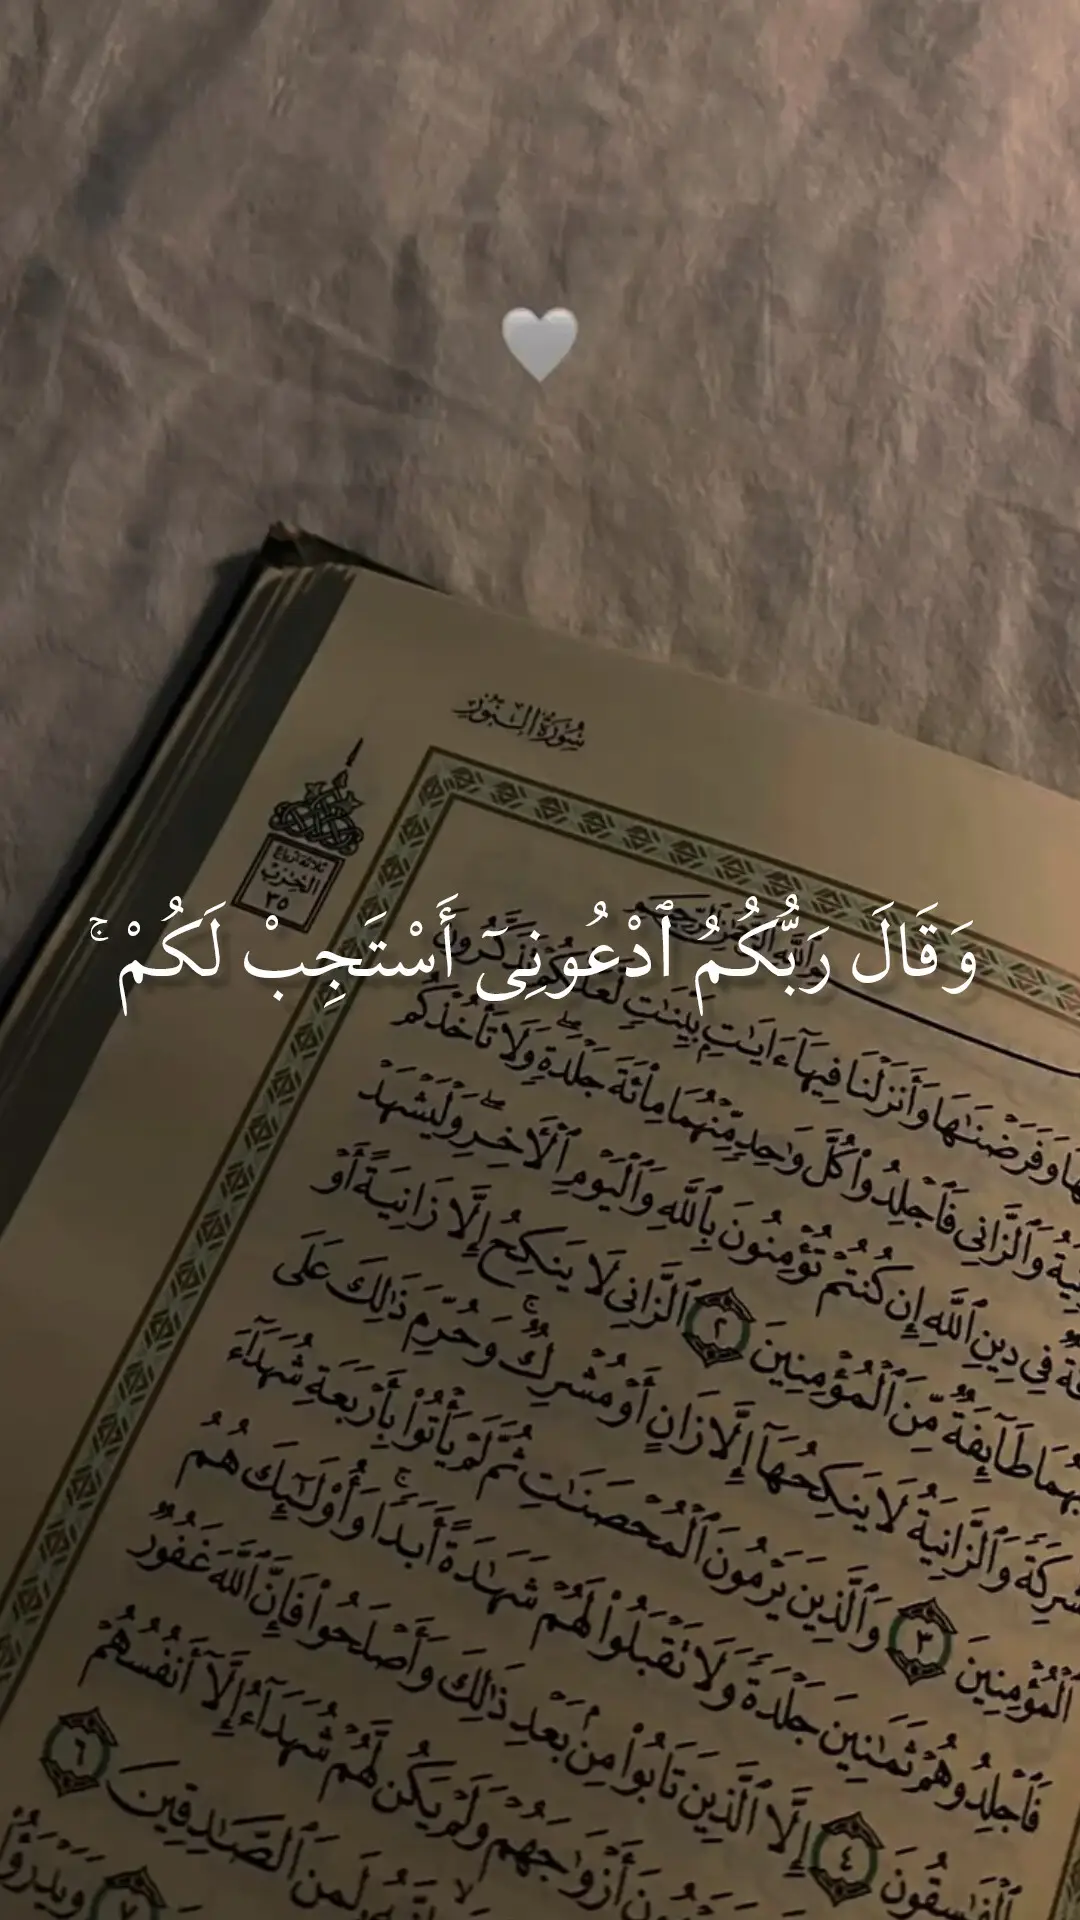 سُورَةُ النُّورِ
ثلاثة أرباع
الحزب
٣٥
وَقَالَ رَبُّكُمُ ٱدْعُونِىٓ أَسْتَجِبْ لَكُمْ ۚ
وَفَرَضْنَـٰهَا وَأَنزَلْنَا فِيهَآ ءَايَـٰتٍۭ بَيِّنَـٰتٍ لَّعَلَّكُمْ تَذَكَّرُونَ
وَٱلزَّانِى فَٱجْلِدُوا۟ كُلَّ وَٰحِدٍ مِّنْهُمَا مِا۟ئَةَ جَلْدَةٍ ۖ وَلَا تَأْخُذْكُم
فِى دِينِ ٱللَّهِ إِن كُنتُمْ تُؤْمِنُونَ بِٱللَّهِ وَٱلْيَوْمِ ٱلْـَٔاخِرِ ۖ وَلْيَشْهَدْ
طَآئِفَةٌ مِّنَ ٱلْمُؤْمِنِينَ ٢ ٱلزَّانِى لَا يَنكِحُ إِلَّا زَانِيَةً أَوْ
وَٱلزَّانِيَةُ لَا يَنكِحُهَآ إِلَّا زَانٍ أَوْ مُشْرِكٌ ۚ وَحُرِّمَ ذَٰلِكَ عَلَى
ٱلْمُؤْمِنِينَ ٣ وَٱلَّذِينَ يَرْمُونَ ٱلْمُحْصَنَـٰتِ ثُمَّ لَمْ يَأْتُوا۟ بِأَرْبَعَةِ شُهَدَآءَ
فَٱجْلِدُوهُمْ ثَمَـٰنِينَ جَلْدَةً وَلَا تَقْبَلُوا۟ لَهُمْ شَهَـٰدَةً أَبَدًا ۚ وَأُو۟لَـٰٓئِكَ هُمُ
ٱلْفَـٰسِقُونَ ٤ إِلَّا ٱلَّذِينَ تَابُوا۟ مِنۢ بَعْدِ ذَٰلِكَ وَأَصْلَحُوا۟ فَإِنَّ ٱللَّهَ غَفُورٌ
أَزْوَٰجَهُمْ وَلَمْ يَكُن لَّهُمْ شُهَدَآءُ إِلَّآ أَنفُسُهُمْ
لَمِنَ ٱلصَّـٰدِقِينَ ٦
٧ وَيَدْرَؤُا۟